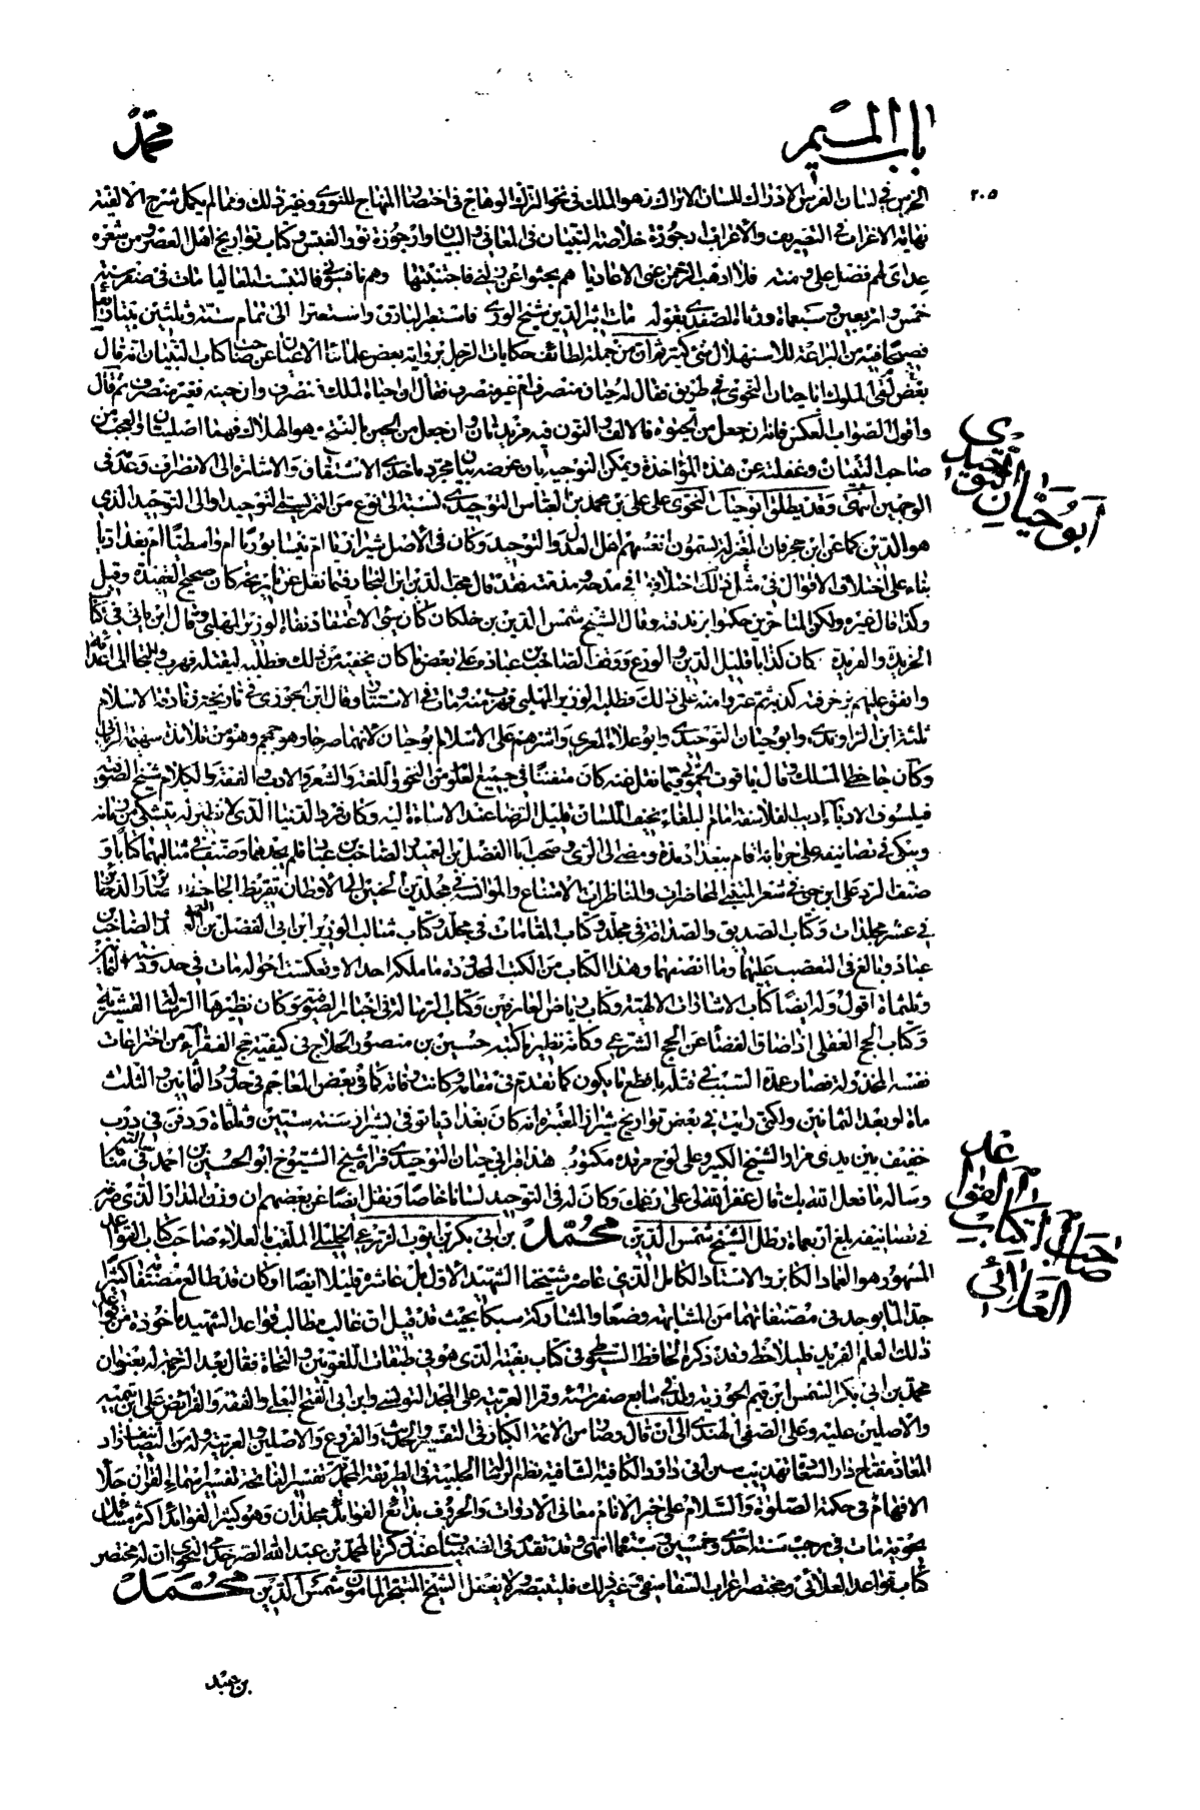 باب الميم
محمد
٢٠٥
الخرس في لسان الفرس الادراك للسان الاتراك زهو الملك في نحو الترك الوهاج في اختصار المنهاج للنووي وغير ذلك ومما لم يكمل شرح الالفية
نهاية الاغراب في التصريف والاعراب ارجوزة خلاصة التبيان في المعاني والبيان وارجوزة نور الغبش وكتاب تواريخ اهل العصر ومن شعره
عداى لهم فضل على ومنة فلا اذهب الرحمن عنى الاعاديا هم بحثوا عن زلتي فاجتنبتها وهم نافسوني فاكتسبت المعاليا مات في صفر سنة
خمس واربعين وسبعماة ورثاه الصفدي بقوله مات اثير الدين شيخ الورى فاستعر البارق واستعبرا الى تمام ستة وثلثين بيتا
بعض لقى الملوك ابا حيان النحوى في طريق فقال له حيان منصرف ام غير منصرف فقال ان حياه الملك منصرف وان حينه فغير منصرف ثم قال
واقول الصواب العكس فانه ان جعل من الحيوة فالالف والنون فيه مزيدتان وان جعل من الحين بالفتح وهو الهلاك فهما اصليتان والعجب من
صاحب التبيان وغفلته عن هذه المؤاخذة ويمكن التوجيه بان غرضه بيان مجرد ماخذى الاشتقاق والاشارة الى الانصراف وعدمه في
الوجهين انتهى وقد يطلق ابو حيان النحوى على على بن محمد بن العباس التوحيدى نسبة الى نوع من التمر يسمى التوحيد او الى التوحيد الذي
هو الدين كما عن ابن حجر فان المعتزلة يسمون انفسهم اهل العدل والتوحيد وكان في الاصل شيرازيا ام نيسابوريا ام واسطيا ام بغداديا
بناء على اختلاف الاقوال في مثل ذلك اختلافا في مدحه ومذمته فقد قال محب الدين ابن النجار فيما نقل عن تاريخه كان صحيح العقيدة وقيل
وكذا قال غيره ولكن المتاخرين حكموا بزندقته وقال الشيخ شمس الدين بن خلكان كان سيئ الاعتقاد نفاه الوزير المهلبي وقال ابن بابي في كتاب
الخريدة والفريدة كان كذابا قليل الدين والورع ووقف الصاحب بن عباد على بعض ما كان يخفيه من ذلك فطلبه ليقتله فهرب والتجأ الى اعدائه
وانفق عليهم بزخرفه كذبه ثم عثروا منه على ذلك فطلبه الوزير المهلبي فهرب منه ومات في الاستتار وقال ابن الجوزي في تاريخه زنادقة الاسلام
ثلثة ابن الراوندي وابو حيان التوحيدى وابو علاء المعري واشرهم على الاسلام ابو حيان لانهما صرحا وهو جمجم وهو من تلامذة
وكان جاحظي المسلك قال ياقوت الحموي فيما نقل عنه كان متفننا في جميع العلوم من النحو واللغة والشعر والادب والفقه والكلام شيخ الصوفية
فيلسوف الادباء اديب الفلاسفة امام البلغاء سخيف اللسان قليل الرضا عند الاساءة اليه وكان فرد الدنيا الذي لا نظير له يتشكى من زمانه
ويبكى في تصانيفه على حرمانه اقام ببغداد مدة ومضى الى الري وصحب ابا الفضل بن العميد والصاحب بن عباد فلم يحمدهما وصنف في مثالبهما كتابا و
صنف الرد على ابن جني في شعر المتنبي المحاضرات والمناظرات الامتاع والمؤانسة في مجلدين الحنين الى الاوطان تقريظ الجاحظ البصائر والذخائر
في عشر مجلدات وكتاب الصديق والصداقة في مجلد وكتاب المقابسات في مجلد وكتاب مثالب الوزيرين ابي الفضل بن العميد والصاحب بن
عباد وبالغ في التعصب عليهما وما انصفهما وهذا الكتاب من الكتب المحدودة ما ملكه احد الا وتعكست احواله مات في حدود سنة ثمانين
وثلثماة اقول وله ايضا كتاب الاشارات الالهية وكتاب رياض العارفين وكتاب الرسالة في اخبار الصوفية وكان نظيرها الرسالة القشيرية
وكتاب الحج العقلى اذا ضاق الفضاء عن الحج الشرعي وكانه نظير ما كتبه حسين بن منصور الحلاج في كيفية حج الفقراء من اختراعات
نفسه المخذولة فصار عمدة السبب في قتله بافظع ما يكون كما تقدم في مقامه وكانت وفاته كما في بعض المعاجم في حدود الثمانين والثلث
ماة او بعد الثمانين ولكني رايت في بعض تواريخ شيراز المعتبرة انه كان بغداديا توفي بشيراز سنة ستين وثلثماة ودفن في درب
خفيف بين يدى مزار الشيخ الكبير وعلى لوح مرقده مكتوب هذا قبر ابي حيان التوحيدى قراه شيخ الشيوخ ابو الحسين بن احمد في منامه
وساله ما فعل الله بك قال غفر لي على رغمك وكان له في التوحيد لسانا خاصا ونقل ايضا عن بعضهم ان وزن المداد الذي صرفه
في تصانيفه بلغ اربعماة رطل الشيخ شمس الدين محمد بن ابي بكر بن ايوب الزرعي الحنبلي الملقب بالعلاء صاحب كتاب القواعد
المشهور وهو العماد الكابر والاستاد الكامل الذي عاصر شيخنا الشهيد الاول بل عاشره قليلا ايضا او كان قد طالع مصنفه كثيرا
جدا لما يوجد في مصنفاتهما من المشابهة وضعا والمشاركة سبكا بحيث قد قيل ان غالب مطالب قواعد الشهيد ماخوذة من قواعد
ذلك العلم الفريد فليلاحظ وقد ذكره الحافظ السيوطي في كتاب بغيته الذي هو في طبقات اللغويين والنحاة فقال بعد الترجمة له بعنوان
محمد بن ابي بكر الشمس ابن قيم الجوزية ولد في سابع صفر سنة وقرا العربية على المجد التونسي وابن ابي الفتح البعلي والفقه والفرائض على ابن تيمية
والاصلين عليه وعلى الصفي الهندى الى ان قال وصار من الائمة الكبار في التفسير والحديث والفروع والاصلين والعربية وله من التصانيف زاد
المعاد مفتاح دار السعادة تهذيب سنن ابي داود الكافية الشافية نظم الرسالة الحلبية في الطريقة المحمدية تفسير الفاتحة تفسير اسماء القران جلاء
الافهام في حكم الصلوة والسلام على خير الانام معاني الادوات والحروف بدائع الفوائد مجلدان وهو كثير الفوائد اكثره مسائل
نحوية مات في رجب سنة احدى وخمسين وسبعماة انتهى وقد تقدم في الضمن عند ذكرنا لمحمد بن عبد الله الصرخدى النحوي ان له مختصر
كتاب قواعد العلائي ومختصر اعراب السفاقسي وغير ذلك فليتبصر ولا يغفل الشيخ المتبحر المامون شمس الدين محمد
بن عبد
ابو حيان التوحيدي
صاحب كتاب القواعد العلائي